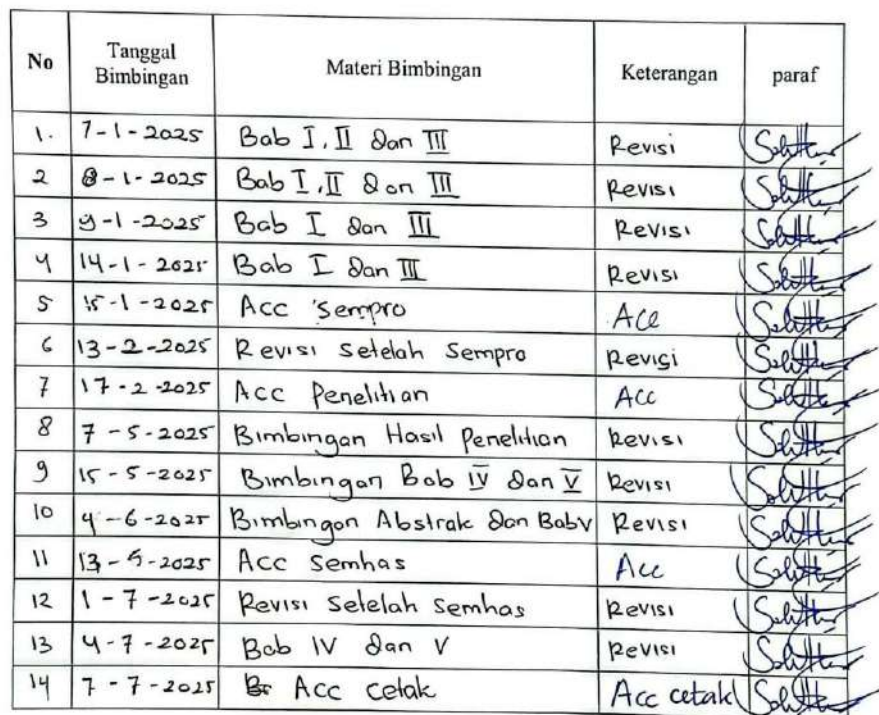 No Tanggal Bimbingan Materi Bimbingan Keterangan paraf
1. 7-1-2025 Bab I, II dan III Revisi
2 8-1-2025 Bab I, II dan III Revisi
3 9-1-2025 Bab I dan III Revisi
4 14-1-2025 Bab I dan III Revisi
5 15-1-2025 Acc Sempro Acc
6 13-2-2025 Revisi setelah Sempro Revisi
7 17-2-2025 Acc Penelitian Acc
8 7-5-2025 Bimbingan Hasil Penelitian Revisi
9 15-5-2025 Bimbingan Bab IV dan V Revisi
10 4-6-2025 Bimbingan Abstrak dan Bab V Revisi
11 Acc Semhas Acc
12 1-7-2025 Revisi setelah Semhas Revisi
13 4-7-2025 Bab IV dan V Revisi
14 7-7-2025 Acc cetak Acc cetak